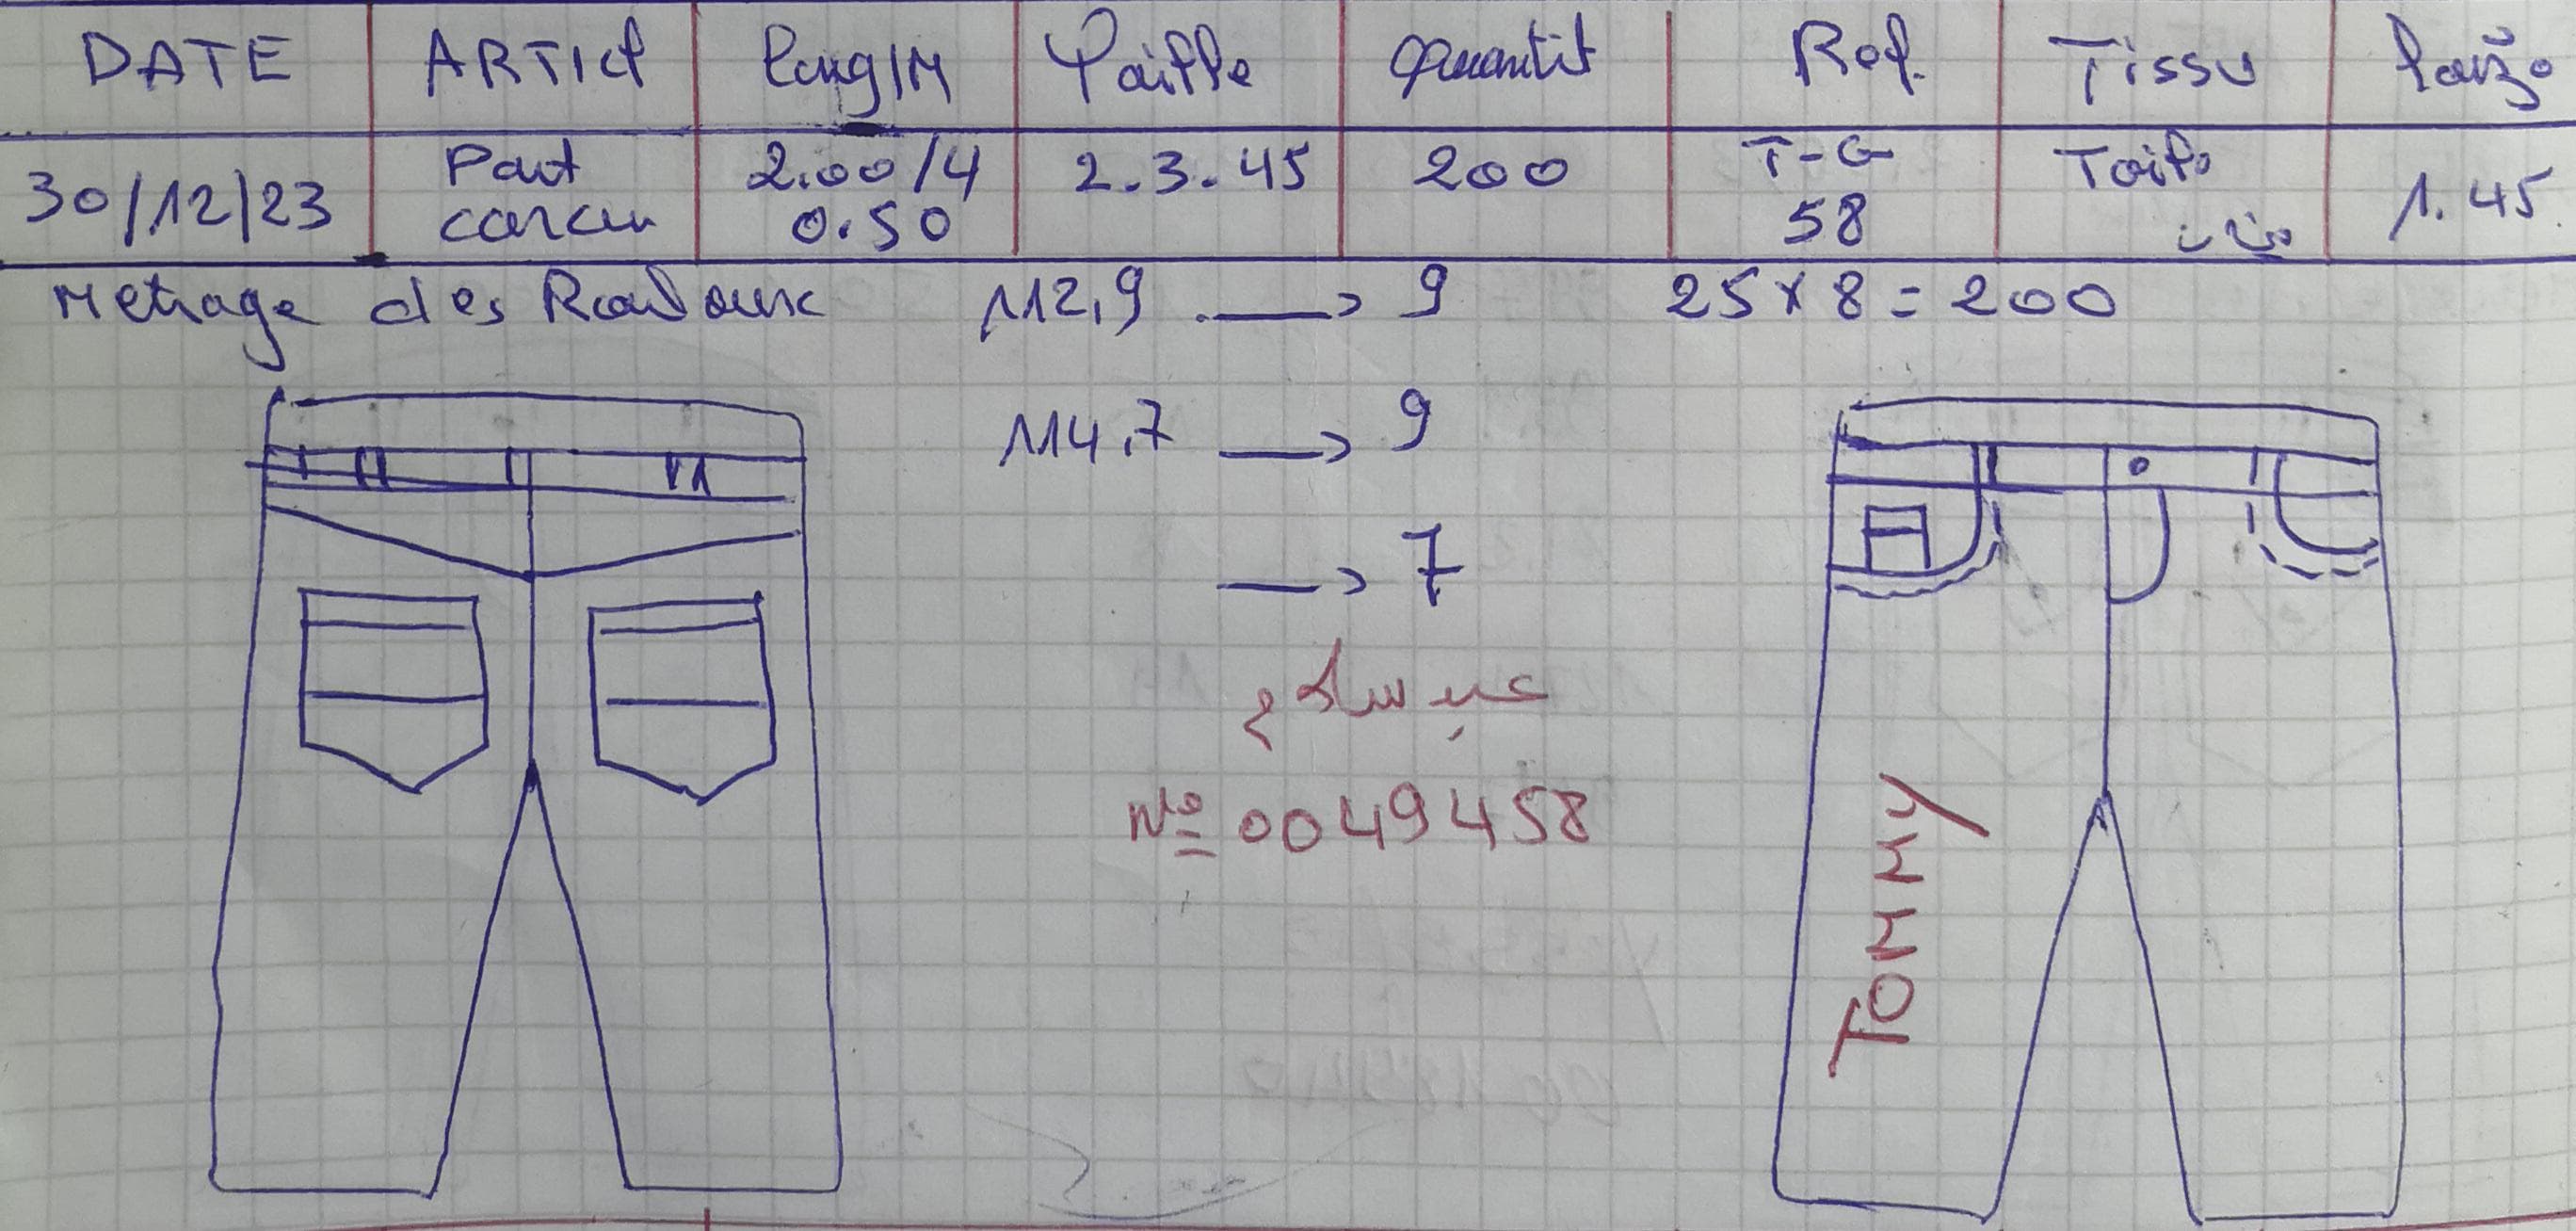 DATE ARTICl long/M Taille quantit Ref. Tissu laiz
30/12/23 Pant 2.00/4 2.3.45 200 T-G Toile 1.45
0.50 58
Metrage des Rouloux 112,9 → 9 25 x 8 = 200
114,7 → 9
→ 7
عبد سلام
N° 0049458
TOMMY